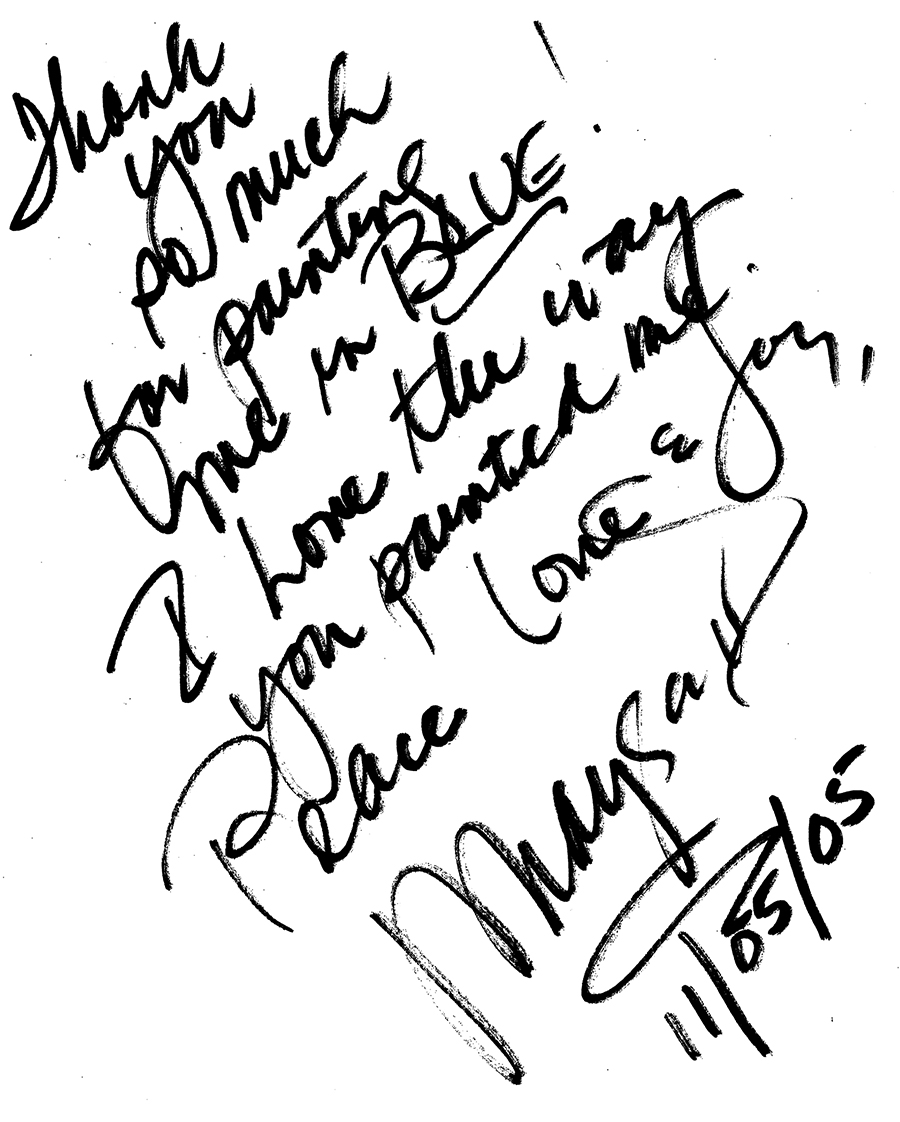 Thank
you
so much
for painting
me in BLUE!
I Love the way
you painted me.
Peace Love & Joy,
Maysa
11/05/05